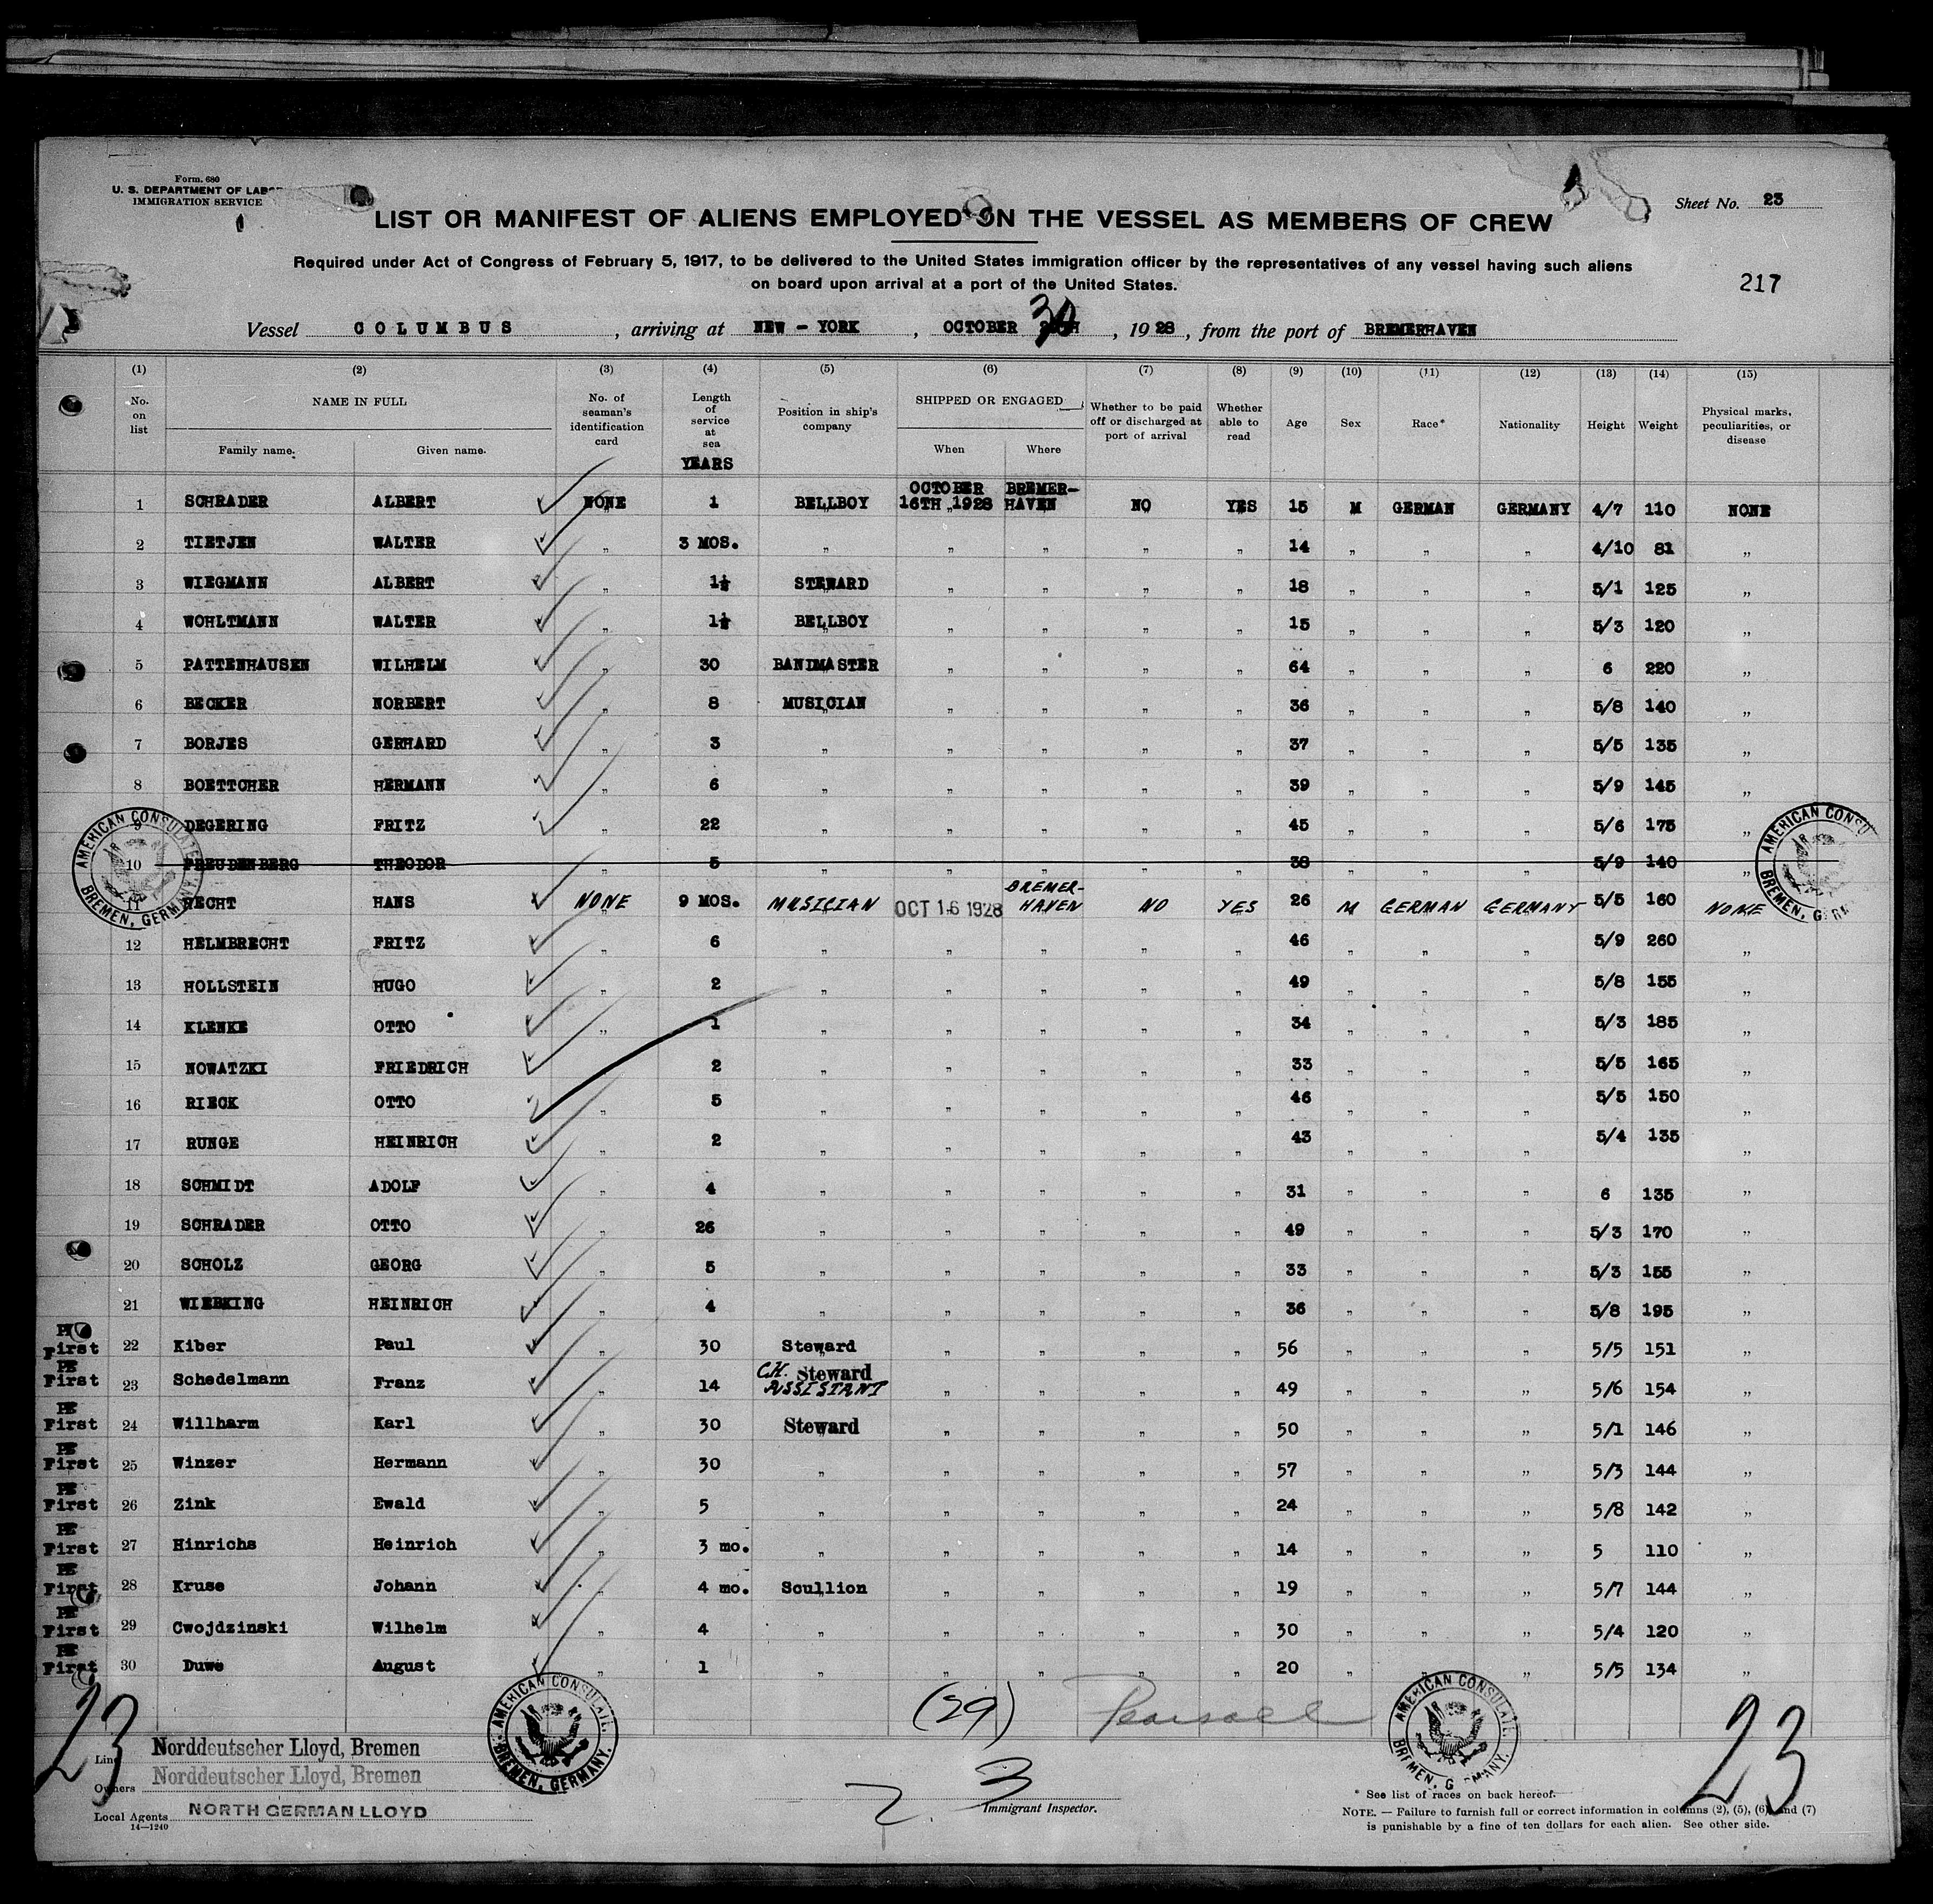 Form. 680
U. S. DEPARTMENT OF LABOR
IMMIGRATION SERVICE
Sheet No. 23
LIST OR MANIFEST OF ALIENS EMPLOYED ON THE VESSEL AS MEMBERS OF CREW
Required under Act of Congress of February 5, 1917, to be delivered to the United States immigration officer by the representatives of any vessel having such aliens
on board upon arrival at a port of the United States.
217
Vessel COLUMBUS, arriving at NEW - YORK, OCTOBER 30, 1928, from the port of BREMERHAVEN
(1) (2) (3) (4) (5) (6) (7) (8) (9) (10) (11) (12) (13) (14) (15)
No. on list NAME IN FULL Family name. Given name. No. of seaman's identification card Length of service at sea Position in ship's company SHIPPED OR ENGAGED When Where Whether to be paid off or discharged at port of arrival Whether able to read Age Sex Race* Nationality Height Weight Physical marks, peculiarities, or disease
YEARS
1 SCHRADER ALBERT NONE 1 BELLBOY OCTOBER 16TH 1928 BREMER-HAVEN NO YES 15 M GERMAN GERMANY 4/7 110 NONE
2 TIETJEN WALTER „ 3 MOS. „ „ „ „ „ 14 „ „ „ 4/10 81 „
3 WIEGMANN ALBERT „ 1½ STEWARD „ „ „ „ 18 „ „ „ 5/1 125 „
4 WOHLTMANN WALTER „ 1½ BELLBOY „ „ „ „ 15 „ „ „ 5/3 120 „
5 PATTENHAUSEN WILHELM „ 30 BANDMASTER „ „ „ „ 64 „ „ „ 6 220 „
6 BECKER NORBERT „ 8 MUSICIAN „ „ „ „ 36 „ „ „ 5/8 140 „
7 BORJES GERHARD „ 3 „ „ „ „ „ 37 „ „ „ 5/5 135 „
8 BOETTCHER HERMANN „ 6 „ „ „ „ „ 39 „ „ „ 5/9 145 „
9 DEGERING FRITZ „ 22 „ „ „ „ „ 45 „ „ „ 5/6 175 „
10 FREUDENBERG THEODOR „ 5 „ „ „ „ „ 38 „ „ „ 5/9 140 „
11 HECHT HANS NONE 9 MOS. MUSICIAN OCT 16 1928 BREMER-HAVEN NO YES 26 M GERMAN GERMANY 5/5 160 NONE
12 HELMBRECHT FRITZ „ 6 „ „ „ „ „ 46 „ „ „ 5/9 260 „
13 HOLLSTEIN HUGO „ 2 „ „ „ „ „ 49 „ „ „ 5/8 155 „
14 KLENKE OTTO „ 1 „ „ „ „ „ 34 „ „ „ 5/3 185 „
15 NOWATZKI FRIEDRICH „ 2 „ „ „ „ „ 33 „ „ „ 5/5 165 „
16 RIECK OTTO „ 5 „ „ „ „ „ 46 „ „ „ 5/5 150 „
17 RUNGE HEINRICH „ 2 „ „ „ „ „ 43 „ „ „ 5/4 135 „
18 SCHMIDT ADOLF „ 4 „ „ „ „ „ 31 „ „ „ 6 135 „
19 SCHRADER OTTO „ 26 „ „ „ „ „ 49 „ „ „ 5/3 170 „
20 SCHOLZ GEORG „ 5 „ „ „ „ „ 33 „ „ „ 5/3 155 „
21 WIEBKING HEINRICH „ 4 „ „ „ „ „ 36 „ „ „ 5/8 195 „
First 22 Kiber Paul „ 30 Steward „ „ „ „ 56 „ „ „ 5/5 151 „
First 23 Schedelmann Franz „ 14 CH. Steward ASSISTANT „ „ „ „ 49 „ „ „ 5/6 154 „
First 24 Willharm Karl „ 30 Steward „ „ „ „ 50 „ „ „ 5/1 146 „
First 25 Winzer Hermann „ 30 „ „ „ „ „ 57 „ „ „ 5/3 144 „
First 26 Zink Ewald „ 5 „ „ „ „ „ 24 „ „ „ 5/8 142 „
First 27 Hinrichs Heinrich „ 3 mo. „ „ „ „ „ 14 „ „ „ 5 110 „
First 28 Kruse Johann „ 4 mo. Scullion „ „ „ „ 19 „ „ „ 5/7 144 „
First 29 Cwojdzinski Wilhelm „ 4 „ „ „ „ „ 30 „ „ „ 5/4 120 „
First 30 Duwe August „ 1 „ „ „ „ „ 20 „ „ „ 5/5 134 „
AMERICAN CONSULATE, BREMEN, GERMANY.
AMERICAN CONSU
BREMEN, G
(29) Pearsall
23
23
AMERICAN CONSULATE, BREMEN, GERMANY.
AMERICAN CONSULATE, BREMEN, G
Line Norddeutscher Lloyd, Bremen
Owners Norddeutscher Lloyd, Bremen
Local Agents NORTH GERMAN LLOYD
14—1240
2. 3
Immigrant Inspector.
* See list of races on back hereof.
NOTE. — Failure to furnish full or correct information in columns (2), (5), (6), and (7)
is punishable by a fine of ten dollars for each alien. See other side.